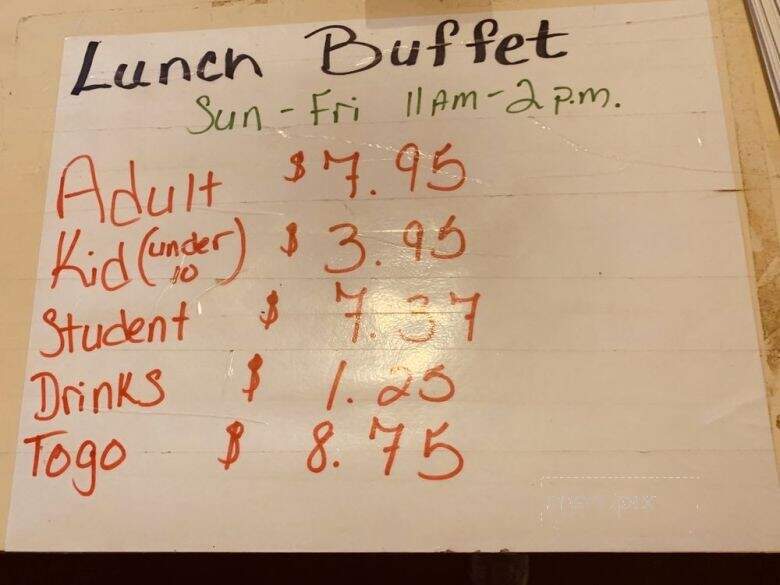 Lunch Buffet
Sun - Fri 11AM - 2 p.m.
Adult $7.95
Kid (under 10) $3.95
Student $7.37
Drinks $1.25
Togo $8.75